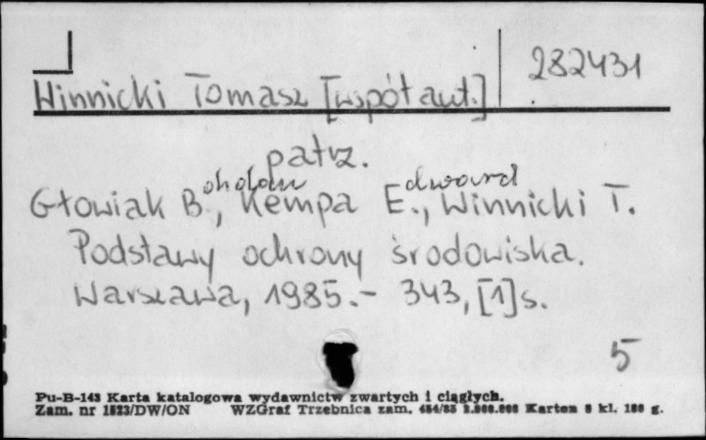 282431
Winnicki Tomasz [współaut.]
patrz.
Głowiak Bohdan, Kempa Edward, Winnicki T.
Podstawy ochrony środowiska.
Warszawa, 1985.- 343, [1]s.
5
Pu-B-143 Karta katalogowa wydawnictw zwartych i ciągłych.
Zam. nr 1523/DW/ON WZGraf Trzebnica zam. 484/85 2.000.000 Karton kl. g.